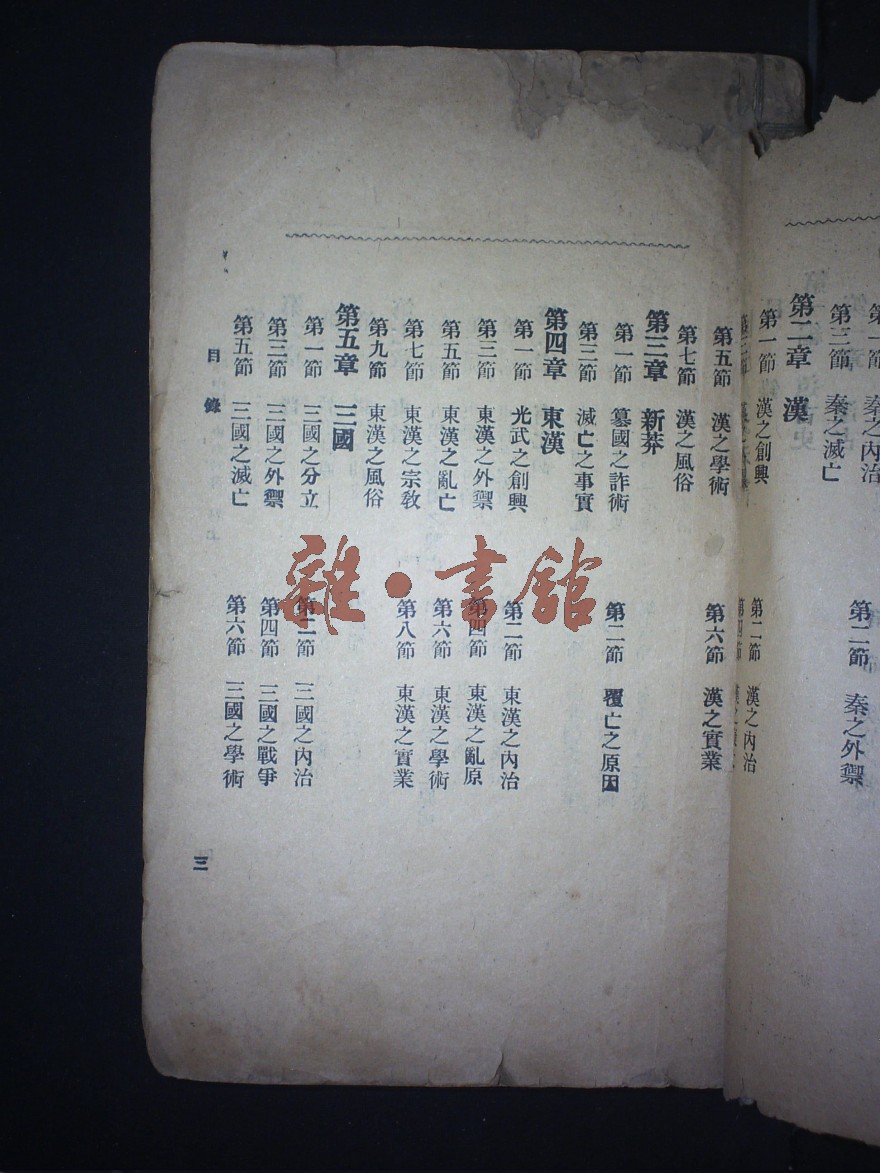 第一節　秦之內治　第二節　秦之外禦
第三節　秦之滅亡
第二章　漢
第一節　漢之創興　第二節　漢之內治
第四節
第五節　漢之學術　第六節　漢之實業
第七節　漢之風俗
第三章　新莽
第一節　篡國之詐術　第二節　覆亡之原因
第三節　滅亡之事實
第四章　東漢
第一節　光武之創興　第二節　東漢之內治
第三節　東漢之外禦　第四節　東漢之亂原
第五節　東漢之亂亡　第六節　東漢之學術
第七節　東漢之宗敎　第八節　東漢之實業
第九節　東漢之風俗
第五章　三國
第一節　三國之分立　第二節　三國之內治
第三節　三國之外禦　第四節　三國之戰爭
第五節　三國之滅亡　第六節　三國之學術
目錄　三
雜·書館